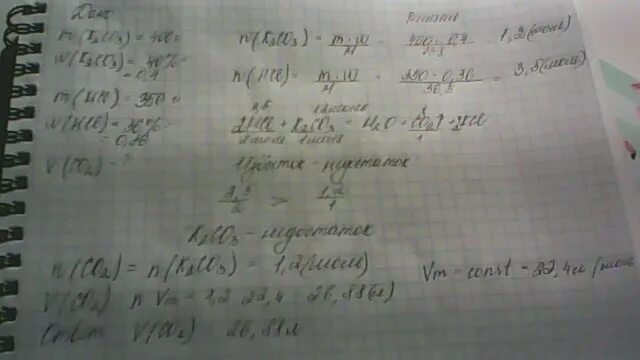 Дано
Решение
m(K₂CO₃) = 400г
w(K₂CO₃) = 40%
= 0,4
m(HCl) = 350 г
w(HCl) = 36%
= 0,36
V(CO₂) - ?
n(K₂CO₃) = m·w/M = 400·0,4/138 = 1,2(моль)
n(HCl) = m·w/M = 350·0,36/36,5 = 3,5(моль)
3,5 1,2 моль
2HCl + K₂CO₃ = H₂O + CO₂↑ + 2KCl
2 моль 1 моль 1
Избыток - недостаток
3,5/2 > 1,2/1
K₂CO₃ - недостаток
n(CO₂) = n(K₂CO₃) = 1,2(моль)
Vm = const = 22,4л/моль
V(CO₂) n Vm = 1,2 22,4 26,88(л)
Ответ V(CO₂) 26,88л